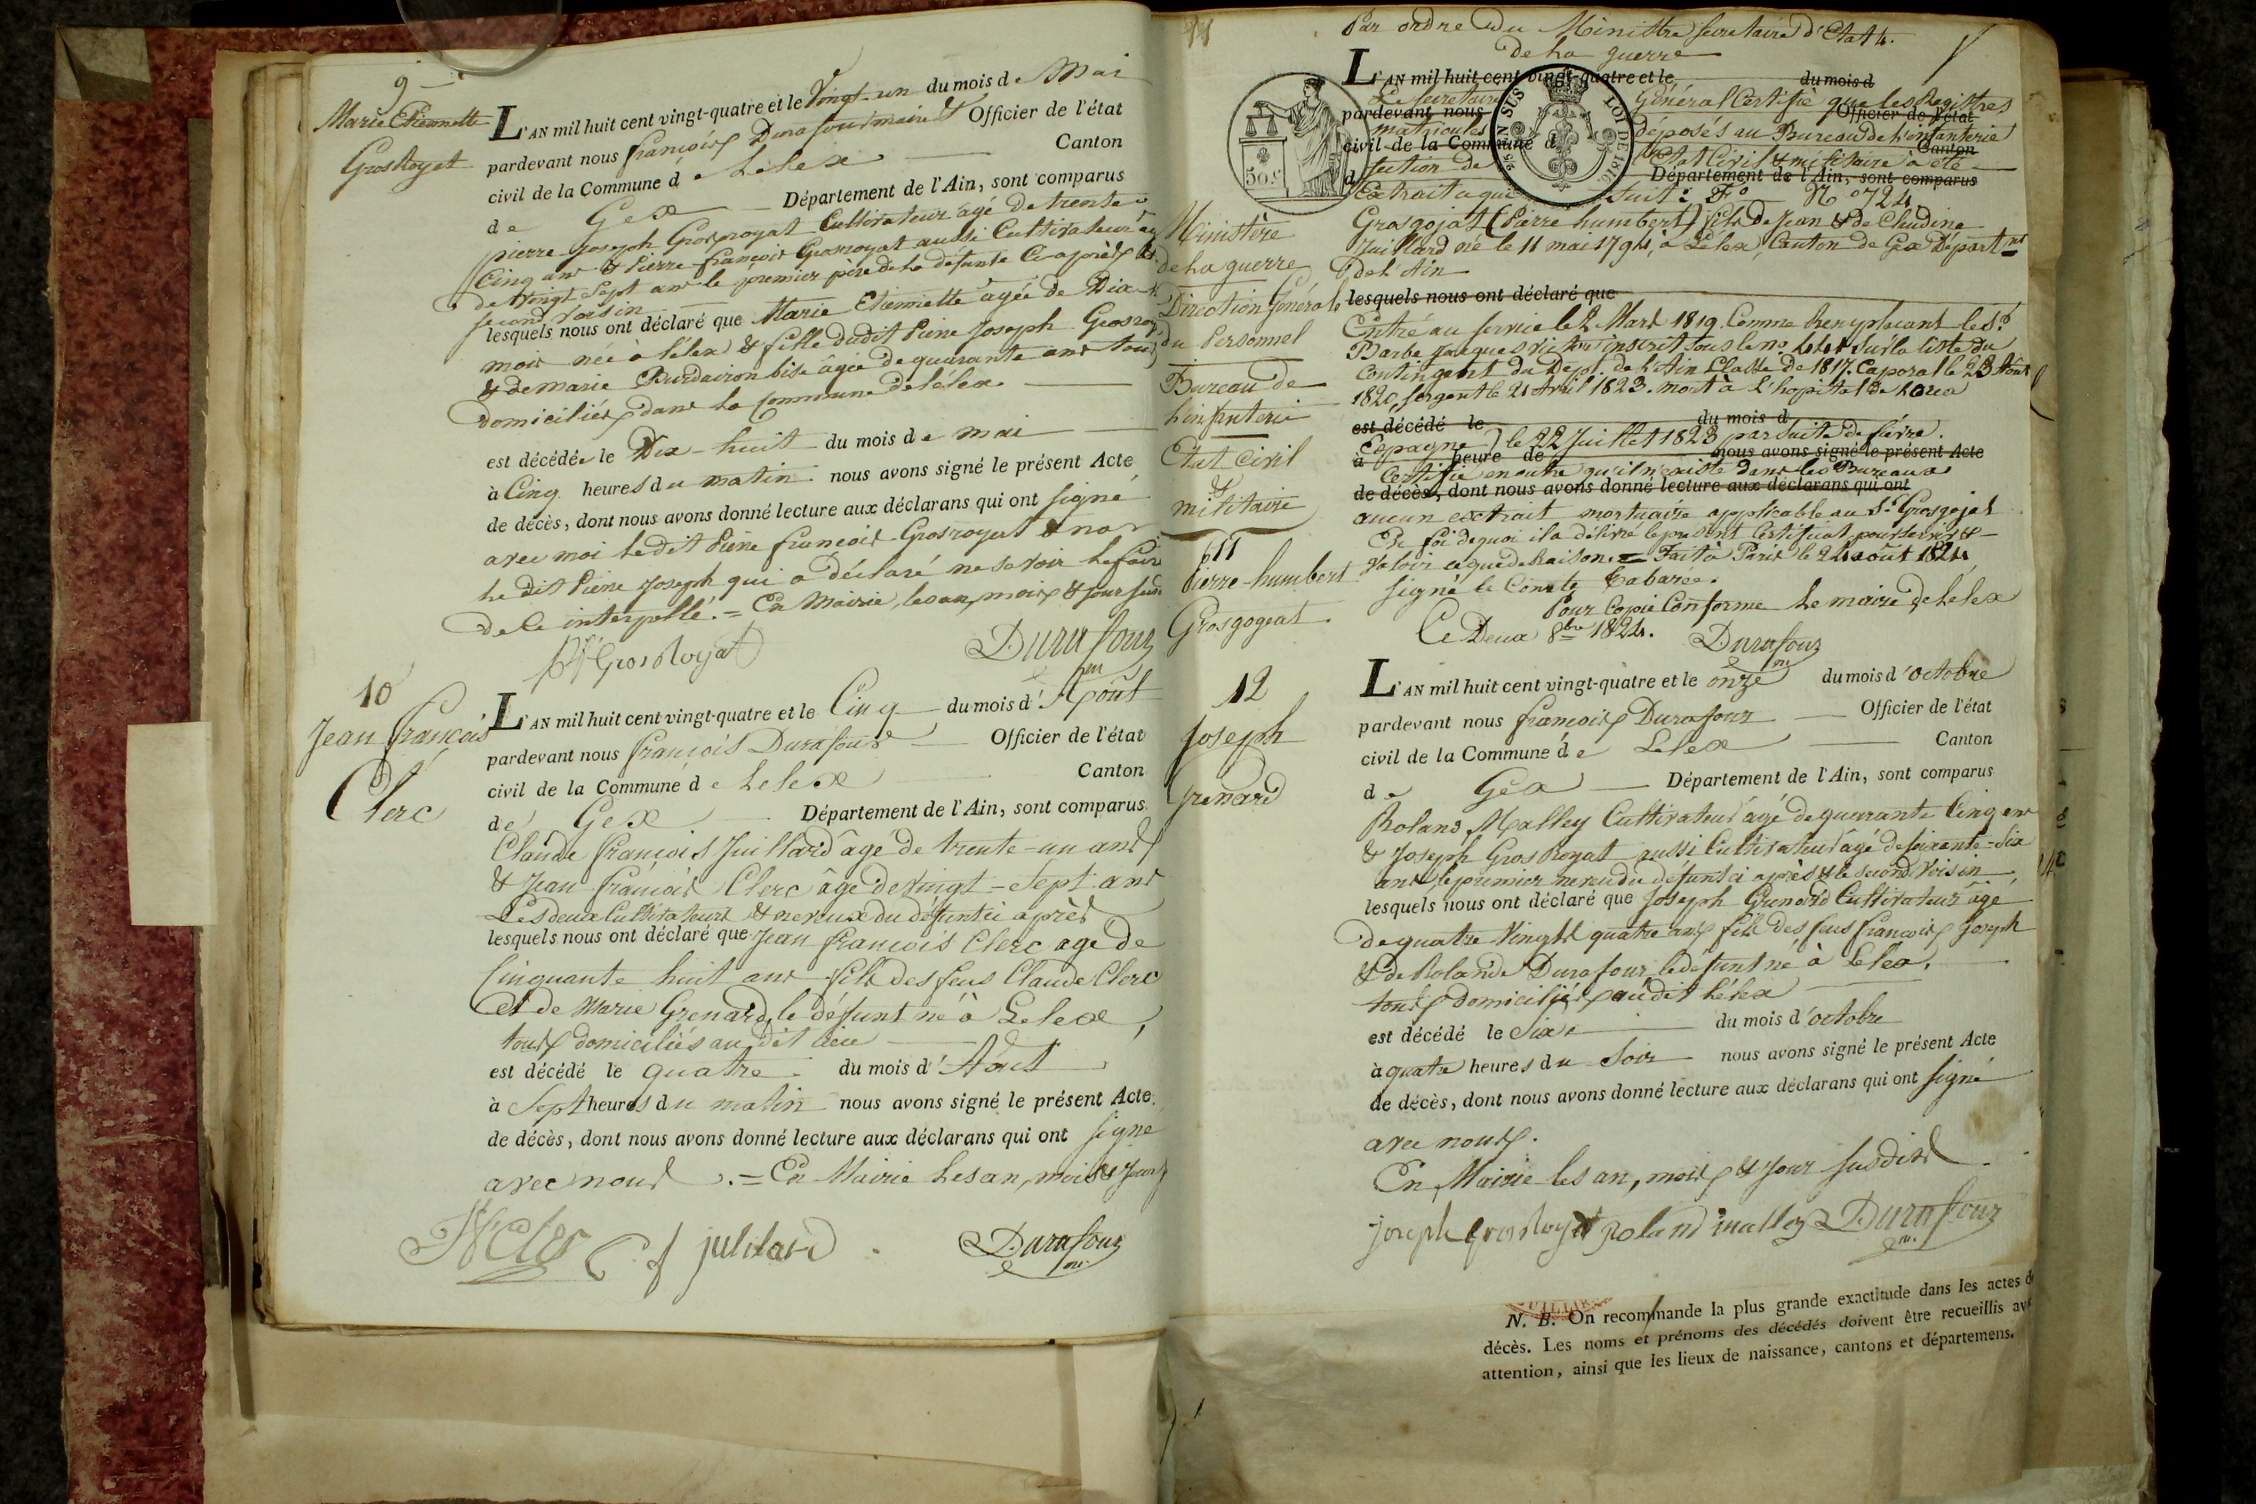 9
Marie Etiennette
GrosRoyat
L'AN mil huit cent vingt-quatre et le Vingt-un du mois de Mai
pardevant nous françois Durafour maire & Officier de l'état
civil de la Commune de Lelex Canton
de Gex Département de l'Ain, sont comparus
pierre Joseph Grosroyat Cultivateur agé de trente
Cinq ans & Pierre françois Grosroyat aussi Cultivateur
de Vingt Sept ans le premier père de la défunte Ci après & le
second voisin
lesquels nous ont déclaré que Marie Etiennette agée de Dix
mois née à Lélex & fille dudit Pierre Joseph Grosroy
& de marie Burdairon bise agée de quarante ans tous
domiciliés dans la Commune de Lélex
est décédée le Dix huit du mois de mai
à Cinq heures du matin nous avons signé le présent Acte
de décès, dont nous avons donné lecture aux déclarans qui ont signé
avec moi ledit Pierre françois Grosroyat & non
le dit Pierre Joseph qui a déclaré ne savoir le faire
de ce interpellé. = En Mairie, les an, mois & jour susd
Pf GrosRoyat Durafour
10
Jean françois
Clerc
L'AN mil huit cent vingt-quatre et le Cinq du mois d'Août
pardevant nous françois Durafour Officier de l'état
civil de la Commune de Lelex Canton
de Gex Département de l'Ain, sont comparus
Claude françois Juillard âgé de trente-un ans
& Jean françois Clerc âgé de vingt-sept ans
Les deux Cultivateurs & neveux du défunt ci après
lesquels nous ont déclaré que Jean françois Clerc age de
Cinquante huit ans fils des feus Claude Clerc
et de Marie Grenard, le défunt né à Lelex,
tous domiciliés au dit lieu
est décédé le quatre du mois d'Aout
à Sept heures du matin nous avons signé le présent Acte
de décès, dont nous avons donné lecture aux déclarans qui ont signé
avec nous. = En Mairie les an, mois & jour
Clerc C f julliard Durafour
11
Par ordre du Ministre secretaire d'Etat
de la guerre
L'AN mil huit cent vingt-quatre et le du mois d
Le secretaire Général Certifie que les Registres
pardevant nous Officier de l'état
matricules déposés au Bureau de l'infanterie
civil de la Commune d Canton
section de l'Etat Civil & militaire à été
d Département de l'Ain, sont comparus
Extrait ce qui suit: F° N° 724
50 c.
EN SUS
LOI DE 1816
Ministère
de la guerre
Direction Générale
du Personnel
Bureau de
l'infanterie
Etat Civil
&
militaire
11
Pierre-humbert
Grosgogeat
Grosgojat (Pierre humbert) fils de Jean & de Claudine
Juillard né le 11 mai 1794, à Lélex, Canton de Gex Départ.nt
de l'Ain
lesquels nous ont déclaré que
Entré au service le 2 Mars 1819. Comme Remplacant le S.r
Barbe Jacques inscrit sous le no sur la liste du
Contingent du Dép.t de l'Ain Classe de 1817. Caporal le 23 Août
1820, sergent le 21 Avril 1823. mort à l'hopital de Lorca
est décédé le du mois d
(Espagne) le 22 Juillet 1823 par suite de fièvre.
à heure de nous avons signé le présent Acte
Certifie en outre qu'il n'existe dans les Bureaux
de décès, dont nous avons donné lecture aux déclarans qui ont
aucun extrait mortuaire applicable au S.r Grosgojat
En foi de quoi il a délivré le présent Certificat pour servir &
valoir ce que de Raison. = Fait à Paris le 24 août 1824
signé le Comte
Pour Copie Conforme le maire de Lelex
Ce Deux 8bre 1824. Durafour
12
Joseph
Grenard
L'AN mil huit cent vingt-quatre et le onze du mois d'octobre
pardevant nous françois Durafour Officier de l'état
civil de la Commune de Lelex Canton
de Gex Département de l'Ain, sont comparus
Roland Malley Cultivateur agé de quarante Cinq ans
& Joseph GrosRoyat aussi Cultivateur agé de soixante-six
ans, le premier neveu du défunt ci après & le second voisin,
lesquels nous ont déclaré que Joseph Grenard Cultivateur agé
de quatre Vingts quatre ans fils des feus françois Joseph
& de Rolande Durafour, le défunt né à Lelex,
tous domiciliés au dit Lélex
est décédé le Six du mois d'octobre
à quatre heures du Soir nous avons signé le présent Acte
de décès, dont nous avons donné lecture aux déclarans qui ont signé
avec nous.
En Mairie les an, mois & jour susdits
joseph grosRoyat Roland malley Durafour
N. B. On recommande la plus grande exactitude dans les actes de
décès. Les noms et prénoms des décédés doivent être recueillis av
attention, ainsi que les lieux de naissance, cantons et départemens.